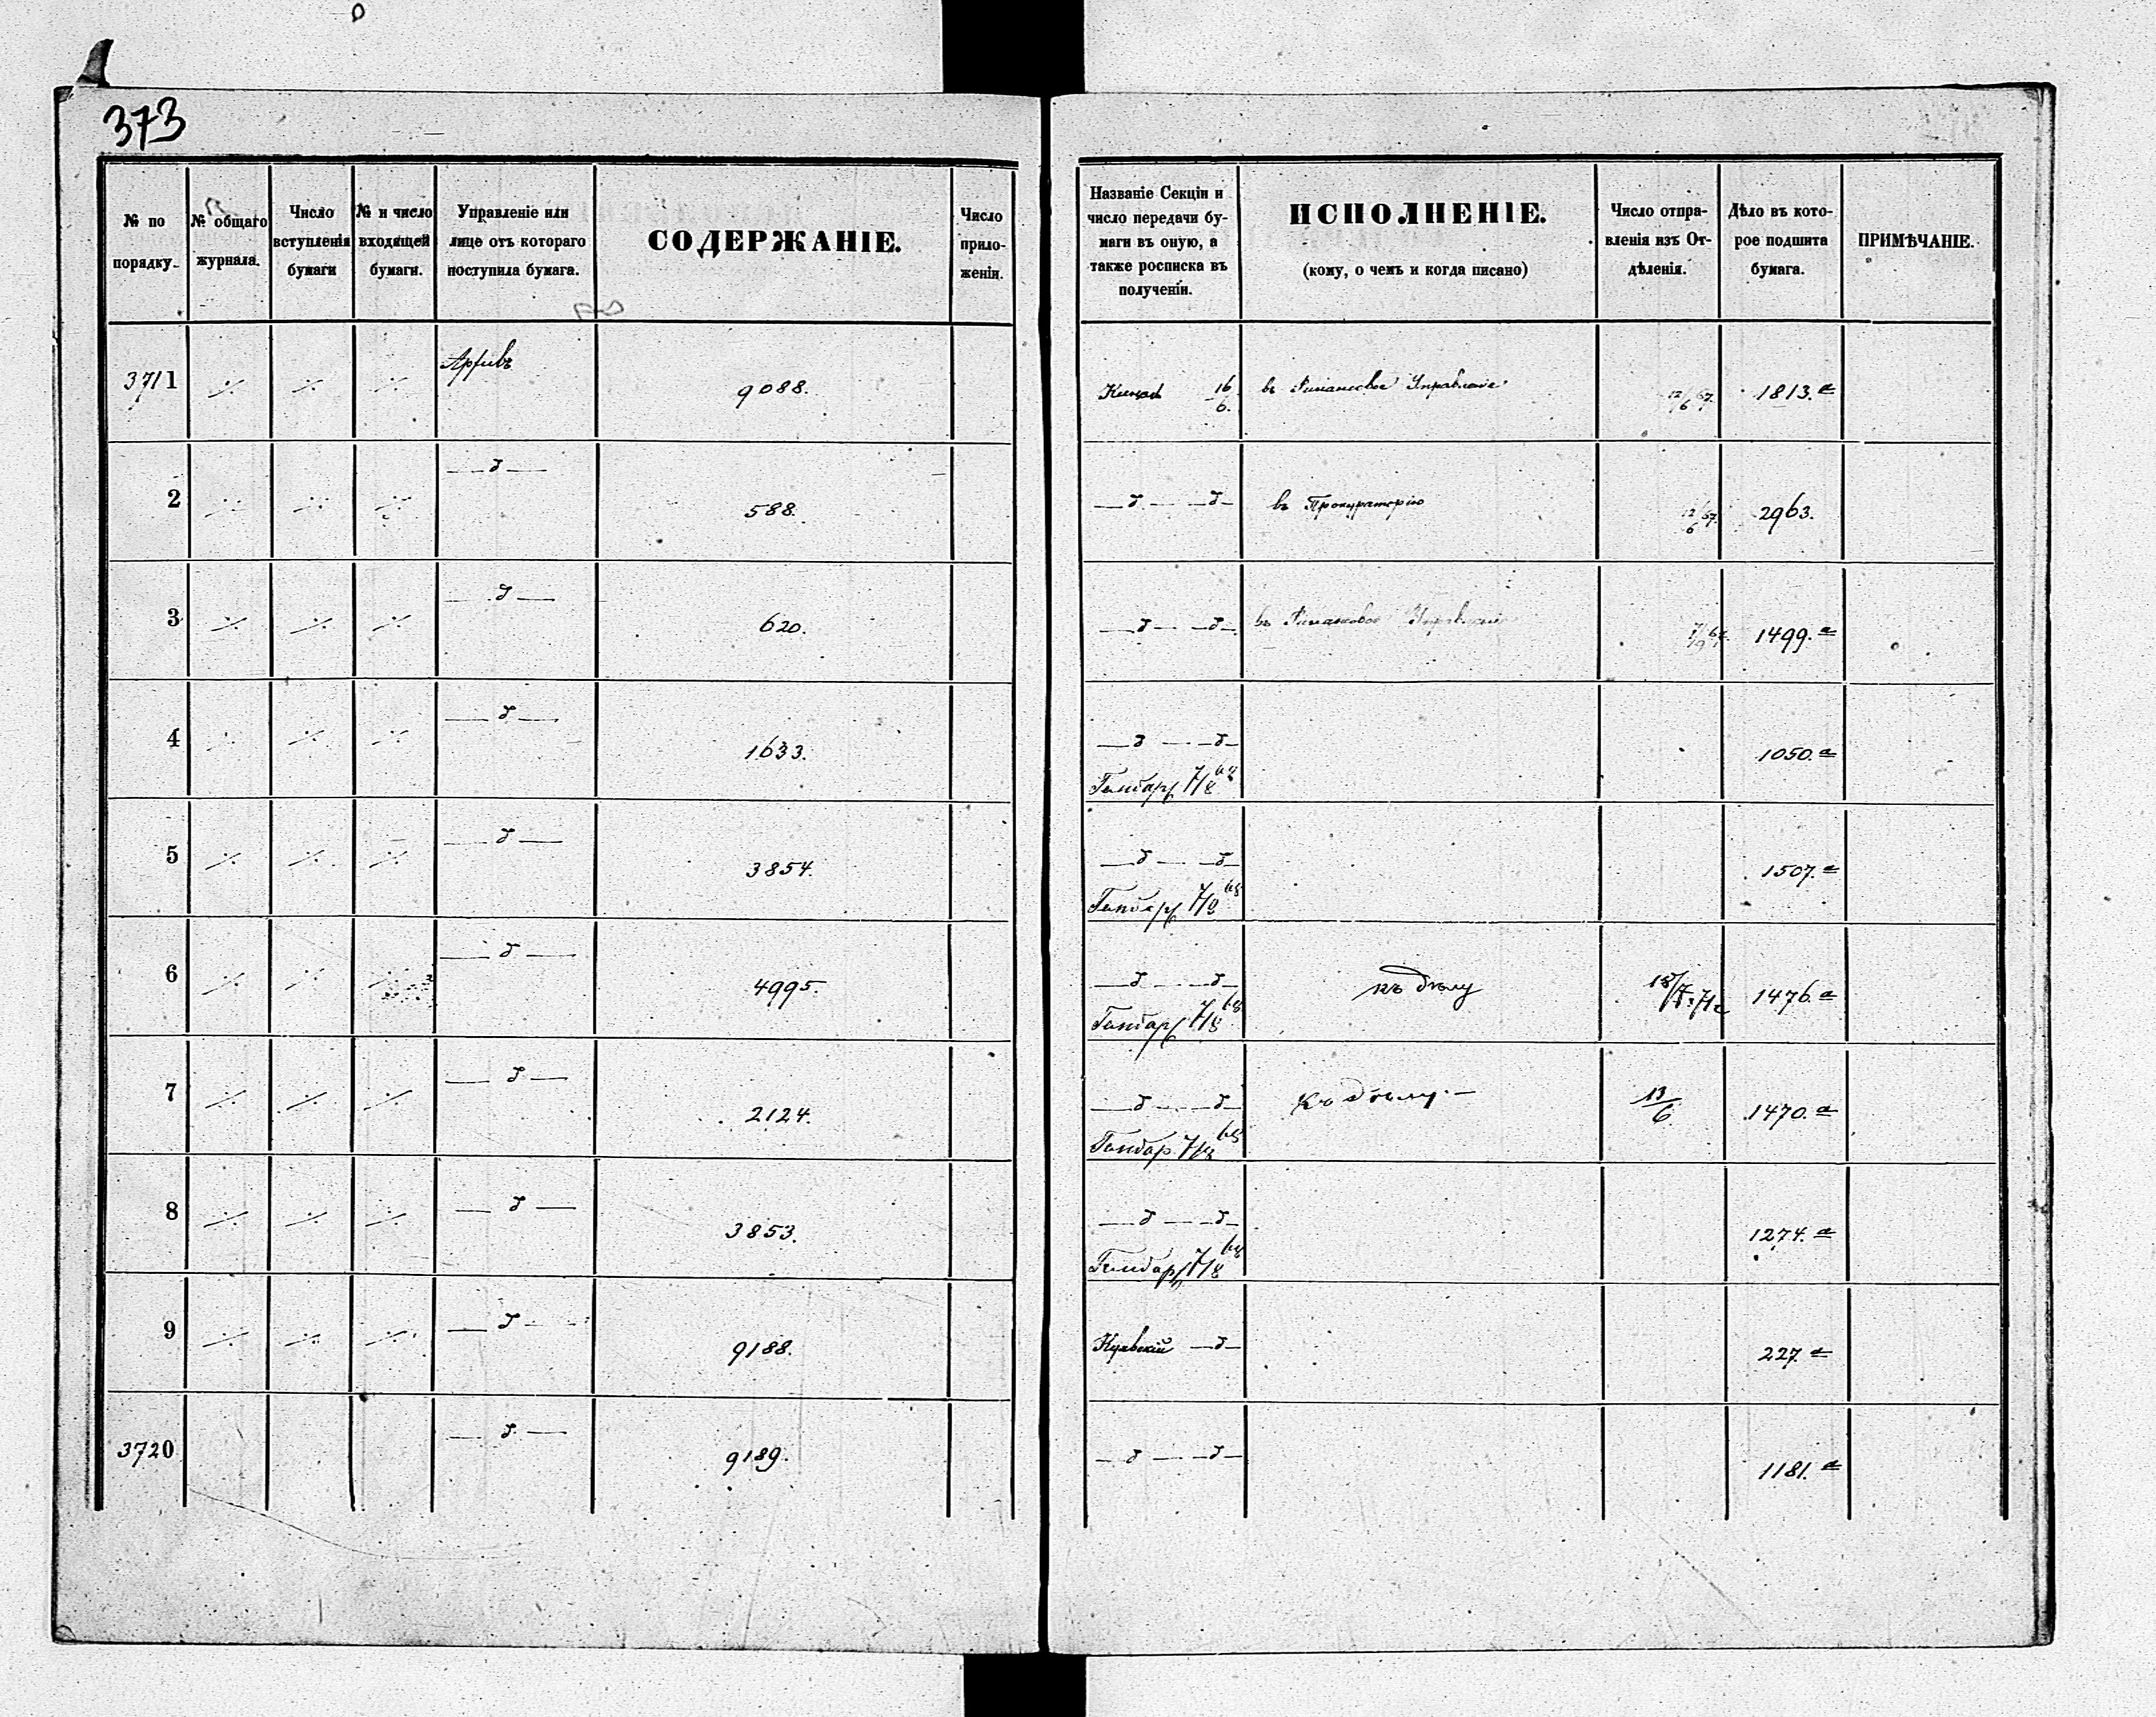 373
№ по порядку.
№ общаго журнала.
Число вступленія бумаги
№ и число входящей бумаги.
Управленіе или лице отъ котораго поступила бумага.
СОДЕРЖАНІЕ.
Число приложеній.
Названіе Секціи и число передачи бумаги въ оную, а также росписка въ полученіи.
ИСПОЛНЕНІЕ.
(кому, о чемъ и когда писано)
Число отправленія изъ Отдѣленія.
Дѣло въ которое подшита бумага.
ПРИМѢЧАНІЕ.
3711 ·/· ·/· ·/· Архивъ 9088. 16/6. въ Финансовое Управленіе 12/6 67. 1813.а
2 ·/· ·/· ·/· —д— 588. —д— —д— въ Прокураторію 12/6 67. 2963.
3 ·/· ·/· ·/· —д— 620. —д— —д— въ Финансовое Управленіе 1499.а
4 ·/· ·/· ·/· —д— 1633. —д— —д— 1050.а
7/8
5 ·/· ·/· ·/· —д— 3854. —д— —д— 1507.а
7/8
6 ·/· ·/· ·/· —д— 4995. —д— —д— къ дѣлу 1476.а
7/8
7 ·/· ·/· ·/· —д— 2124. —д— —д— Къ дѣлу.— 13/6. 1470.а
7/8
8 ·/· ·/· ·/· —д— 3853. —д— —д— 1274.а
7/8
9 ·/· ·/· ·/· —д— 9188. —д— 227.а
3720 —д— 9189. —д— —д— 1181.а